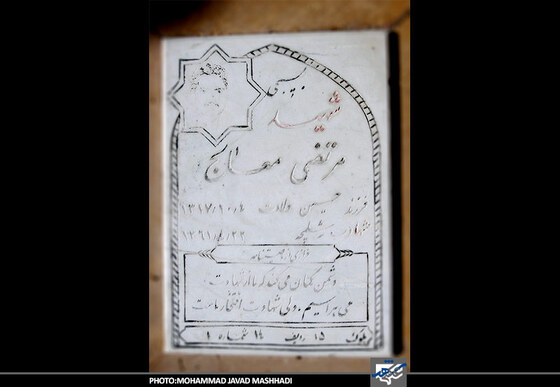 بسیجی
شهید
مرتضی معراج
فرزند حسین ولادت
شهادت
دشمن گمان می‌کند که ما از شهادت
می هراسیم . ولی شهادت افتخار ماست
بلوک ۱۵ ردیف ۱۴ شماره ۱
PHOTO:MOHAMMAD JAVAD MASHHADI